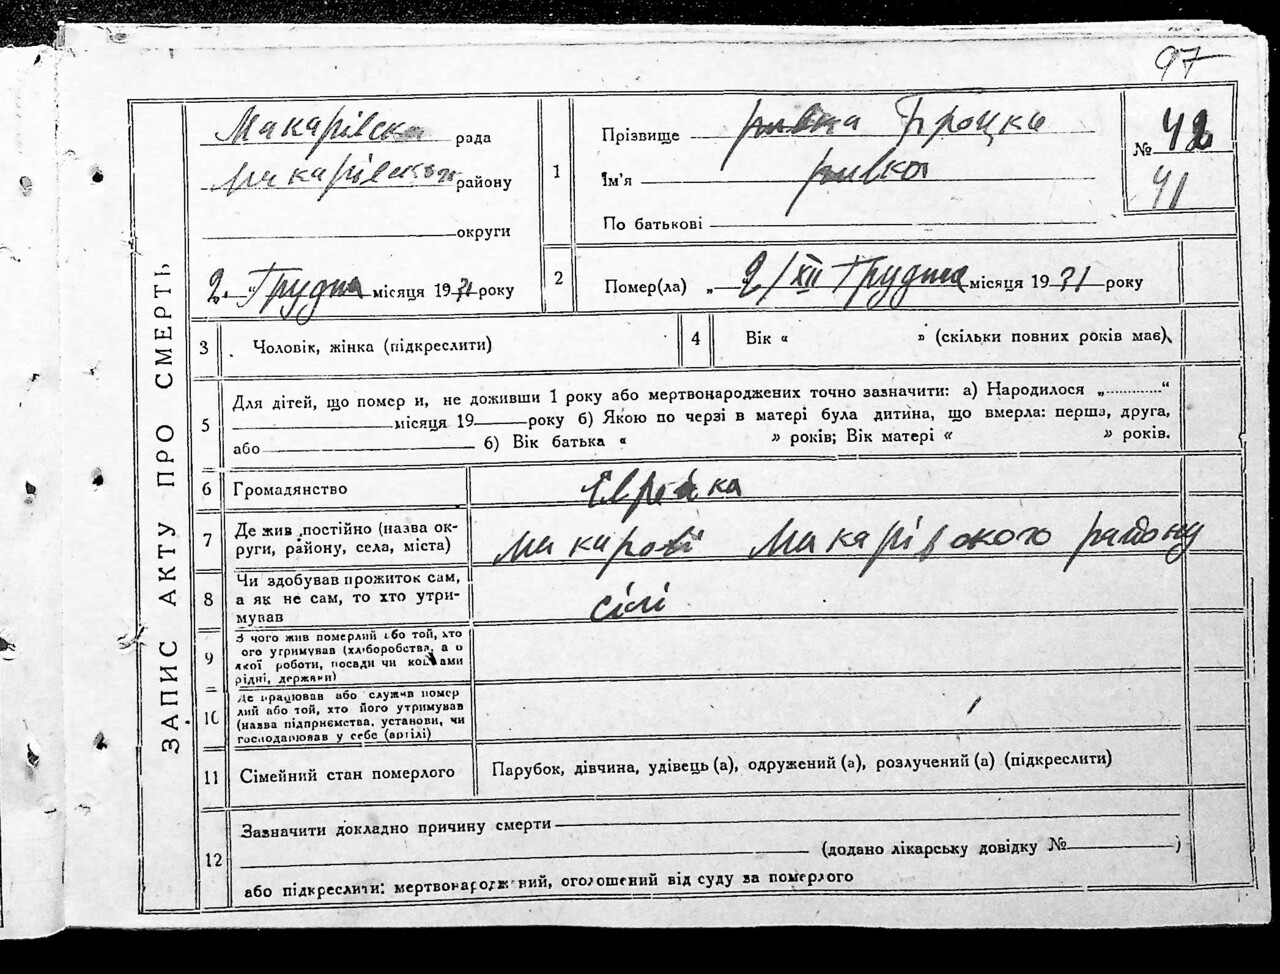 97
ЗАПИС АКТУ ПРО СМЕРТЬ
Макарівська рада
Макарівского району
округи
2. Грудня місяця 1931 року
1
Прізвище
Ім'я Ривка
По батькові
№ 42
41
2
Помер(ла) „ 2/XII Грудня місяця 1931 року
3 Чоловік, жінка (підкреслити)
4 Вік « » (скільки повних років має)
5
Для дітей, що помер и, не доживши 1 року або мертвонароджених точно зазначити: а) Народилося „............“
місяця 19 року б) Якою по черзі в матері була дитина, що вмерла: перша, друга,
або 6) Вік батька « » років; Вік матері « » років.
6 Громадянство Еврейка
7
Де жив постійно (назва ок-
руги, району, села, міста)
Макарові Макарівского району
8
Чи здобував прожиток сам,
а як не сам, то хто утри-
мував
9
З чого жив померлий або той, хто
ого утримував (хліборобства, а о
якої роботи, посади чи коштами
рідні, держави)
10
Де працював або служив помер
лий або той, хто його утримував
(назва підприємства, установи, чи
господарював у себе (артілі)
11 Сімейний стан померлого
Парубок, дівчина, удівець (а), одружений (а), розлучений (а) (підкреслити)
12
Зазначити докладно причину смерти
(додано лікарську довідку № )
або підкреслити: мертвонароджений, оголошений від суду за померлого